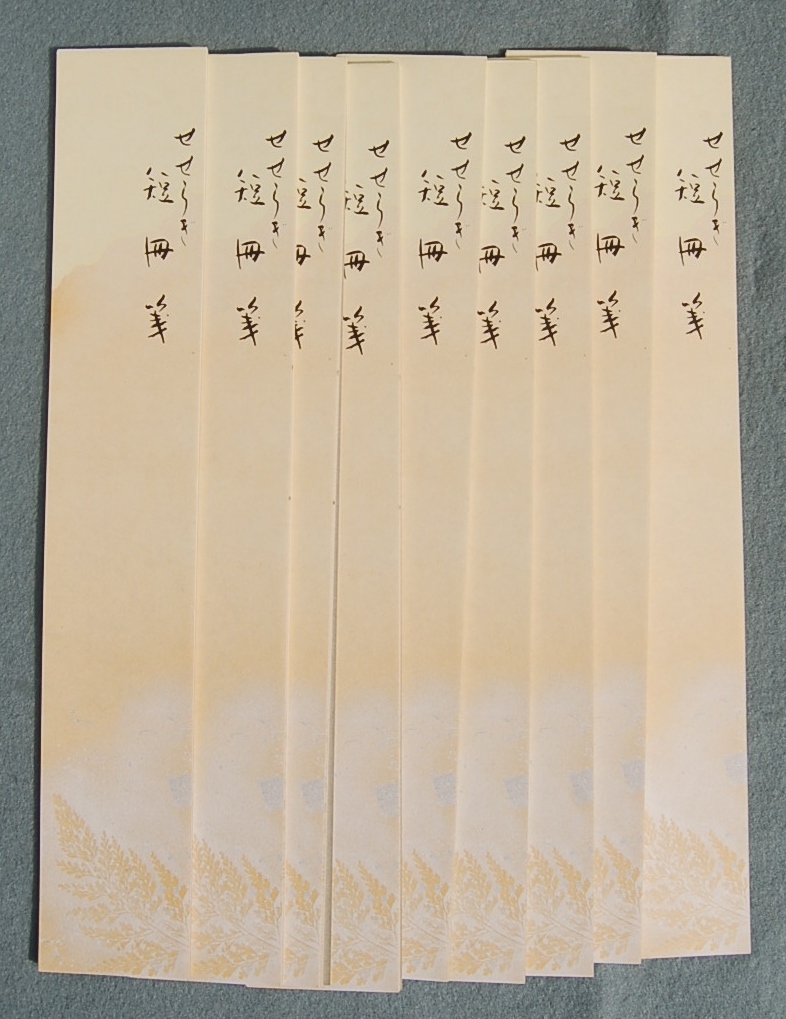 せせらぎ
短冊箋
せせらぎ
短冊箋
せせらぎ
短冊箋
せせらぎ
短冊箋
せせらぎ
短冊箋
せせらぎ
短冊箋
せせらぎ
せせらぎ
短冊箋
せせらぎ
短冊箋